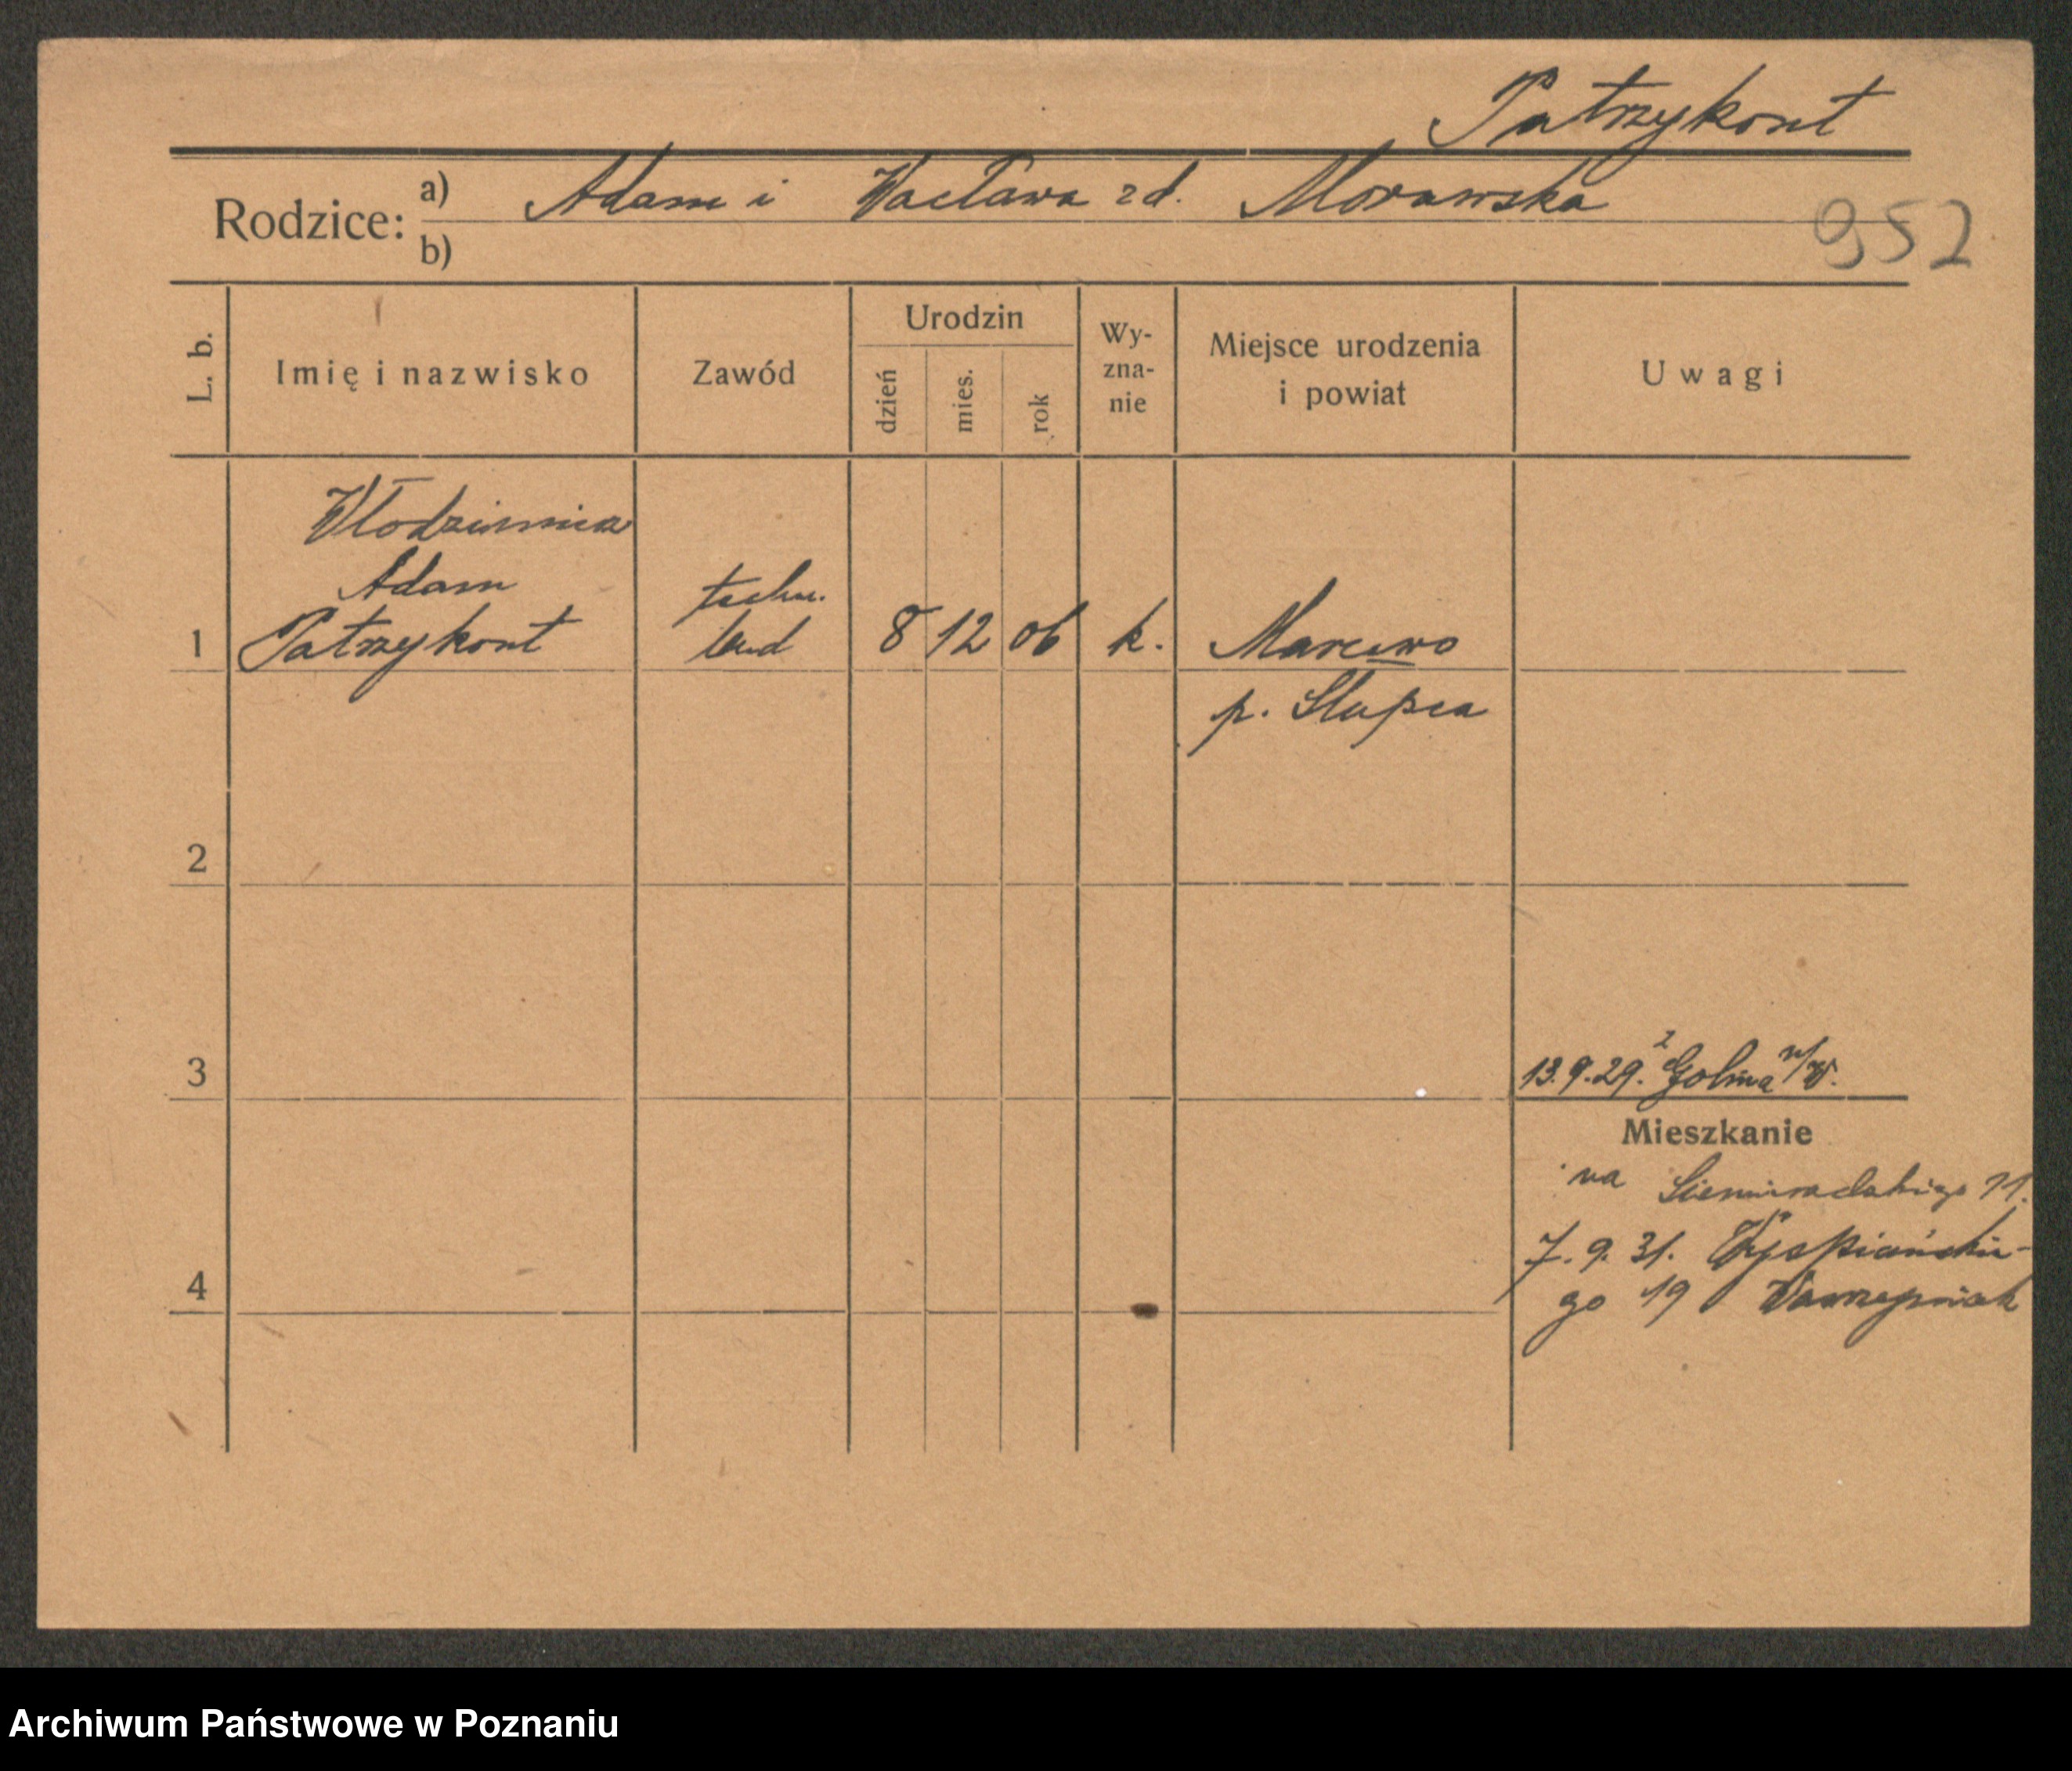 Patrzykont
Rodzice: a) Adam i Wacława zd. Morawska
b)
952
L. b.
Imię i nazwisko
Zawód
Urodzin
dzień
mies.
rok
Wy-
zna-
nie
Miejsce urodzenia
i powiat
Uwagi
Włodzimierz
Adam
1 Patrzykont
techn.
bud
8 12 06 k.
Marcewo
p. Słupca
2
3
13.9.29. z Golina n/W.
Mieszkanie
na Siemiradzkiego 11.
7.9.31. Wyspiańskie-
go 19 Wawrzyniak
4
Archiwum Państwowe w Poznaniu